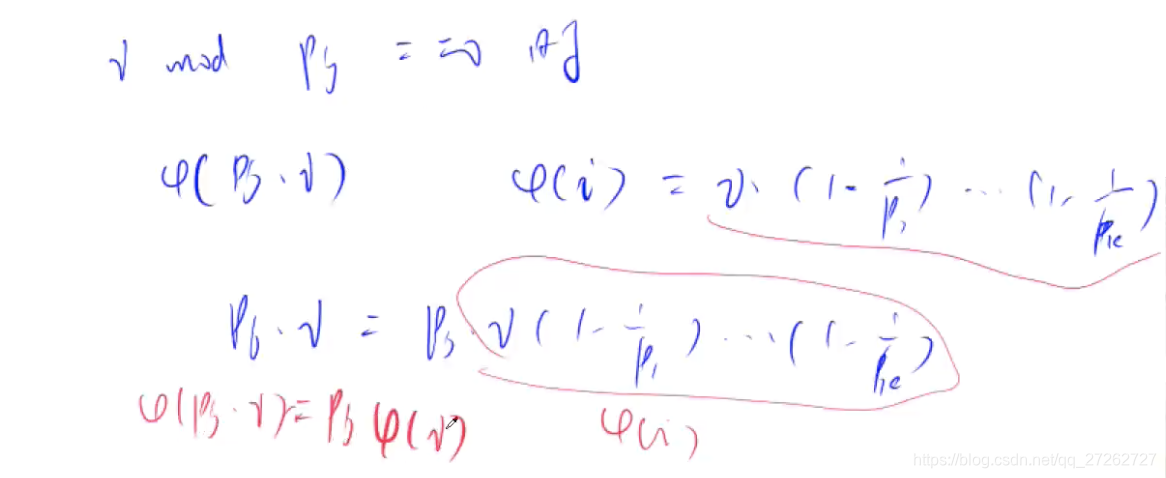 i mod pj == 0 时
φ(pj · i)    φ(i) = i · (1 - 1/p1) ... (1 - 1/pk)
pj · i = pj · i (1 - 1/p1) ... (1 - 1/pk)
φ(pj · i) = pj φ(i)    φ(i)
https://blog.csdn.net/qq_27262727